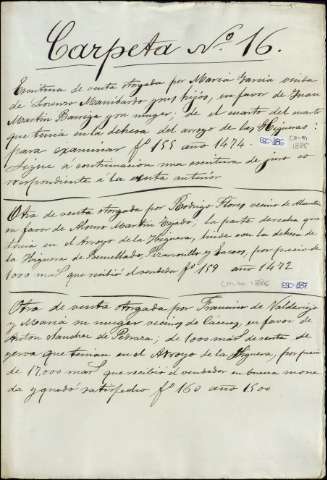 Carpeta Nº 16.
Escritura de venta otorgada por María García viuda
de Lorenzo Manibardo y sus hijos, en favor de Juan
Martín y su muger, de el cuarto del cuarto
que tenia en la dehesa del arroyo de las Higueras:
para examinar fº 155 año 1474.
ESC-186
Sigue á continuacion una escritura de juro co
rrespondiente á la venta anterior
Otra de venta otorgada por Rodrigo Flores vecino de
en favor de Alonso Martin Tejado, la parte derecha que
tenia en el Arroyo de la Higuera, linda con la dehesa de
la Higuera de y por precio de
1000 mas que recibió el vendedor fº 159 año 1472
ESC-187
Otra de venta otorgada por Francisco de Valdevieja
y María su muger vecinos de Cáceres, en favor de
Anton Sanchez de Pedraza; de 1000 mas de renta de
yerva que tenian en el Arroyo de la Higuera, por precio
de 17.000 mas que recibió el vendedor en buena mone
da y quedó satisfecho fº 160 año 1500